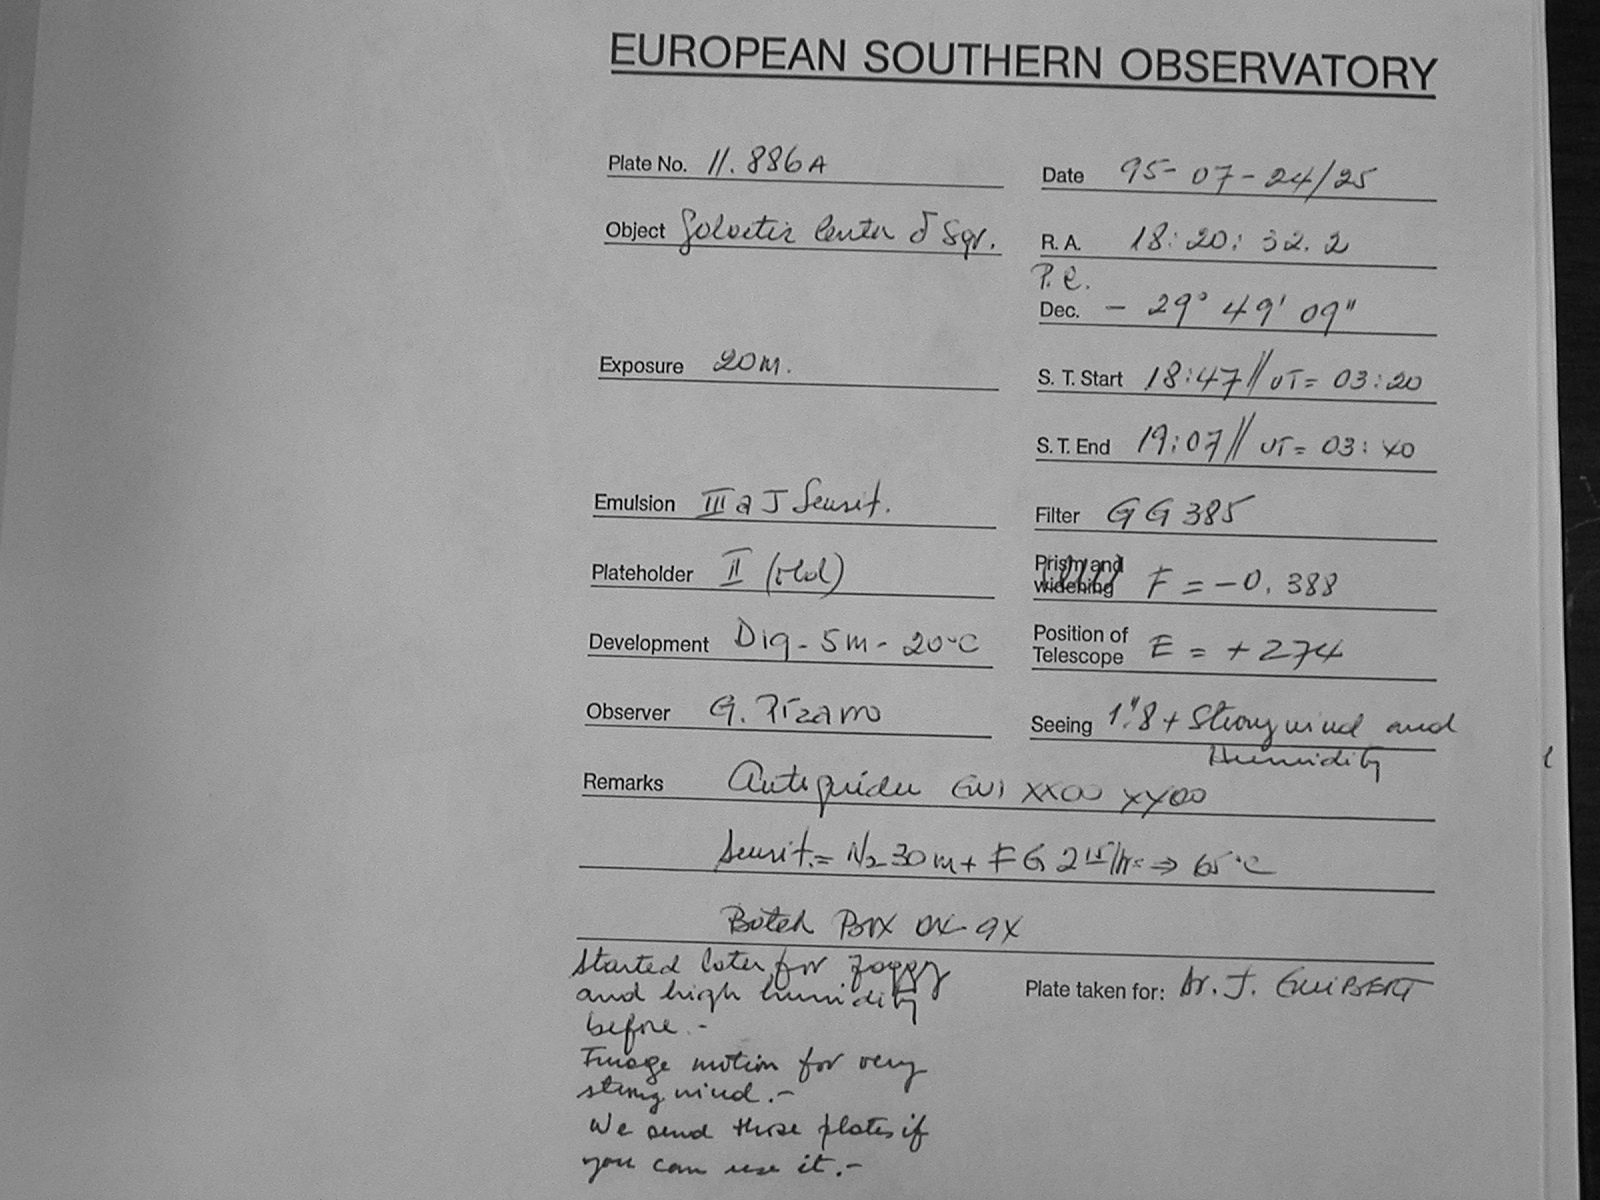 EUROPEAN SOUTHERN OBSERVATORY
Plate No. 11.886A
Date 95-07-24/25
Object Galactic Center δ Sgr.
R.A. 18:20:32.2
P.e.
Dec. - 29° 49' 09"
Exposure 20m.
S. T. Start 18:47 // UT= 03:20
S. T. End 19:07 // UT= 03:40
Emulsion III a J Sensit.
Filter GG385
Plateholder II (Old)
Prism and widening F = -0.388
Development D19 - 5m - 20°C
Position of Telescope E = +274
Observer G. Pizarro
Seeing 1."8 + Strong wind and
Humidity
Remarks Autoguider XX00 YY00
Sensit. = N2 30m + FG 2 /hrs => 65°C
Batch Box
Started later for foggy
and high humidity
before.-
Image motion for very
strong wind.-
We send these plates if
you can use it.-
Plate taken for: Dr. J. GUIBERT